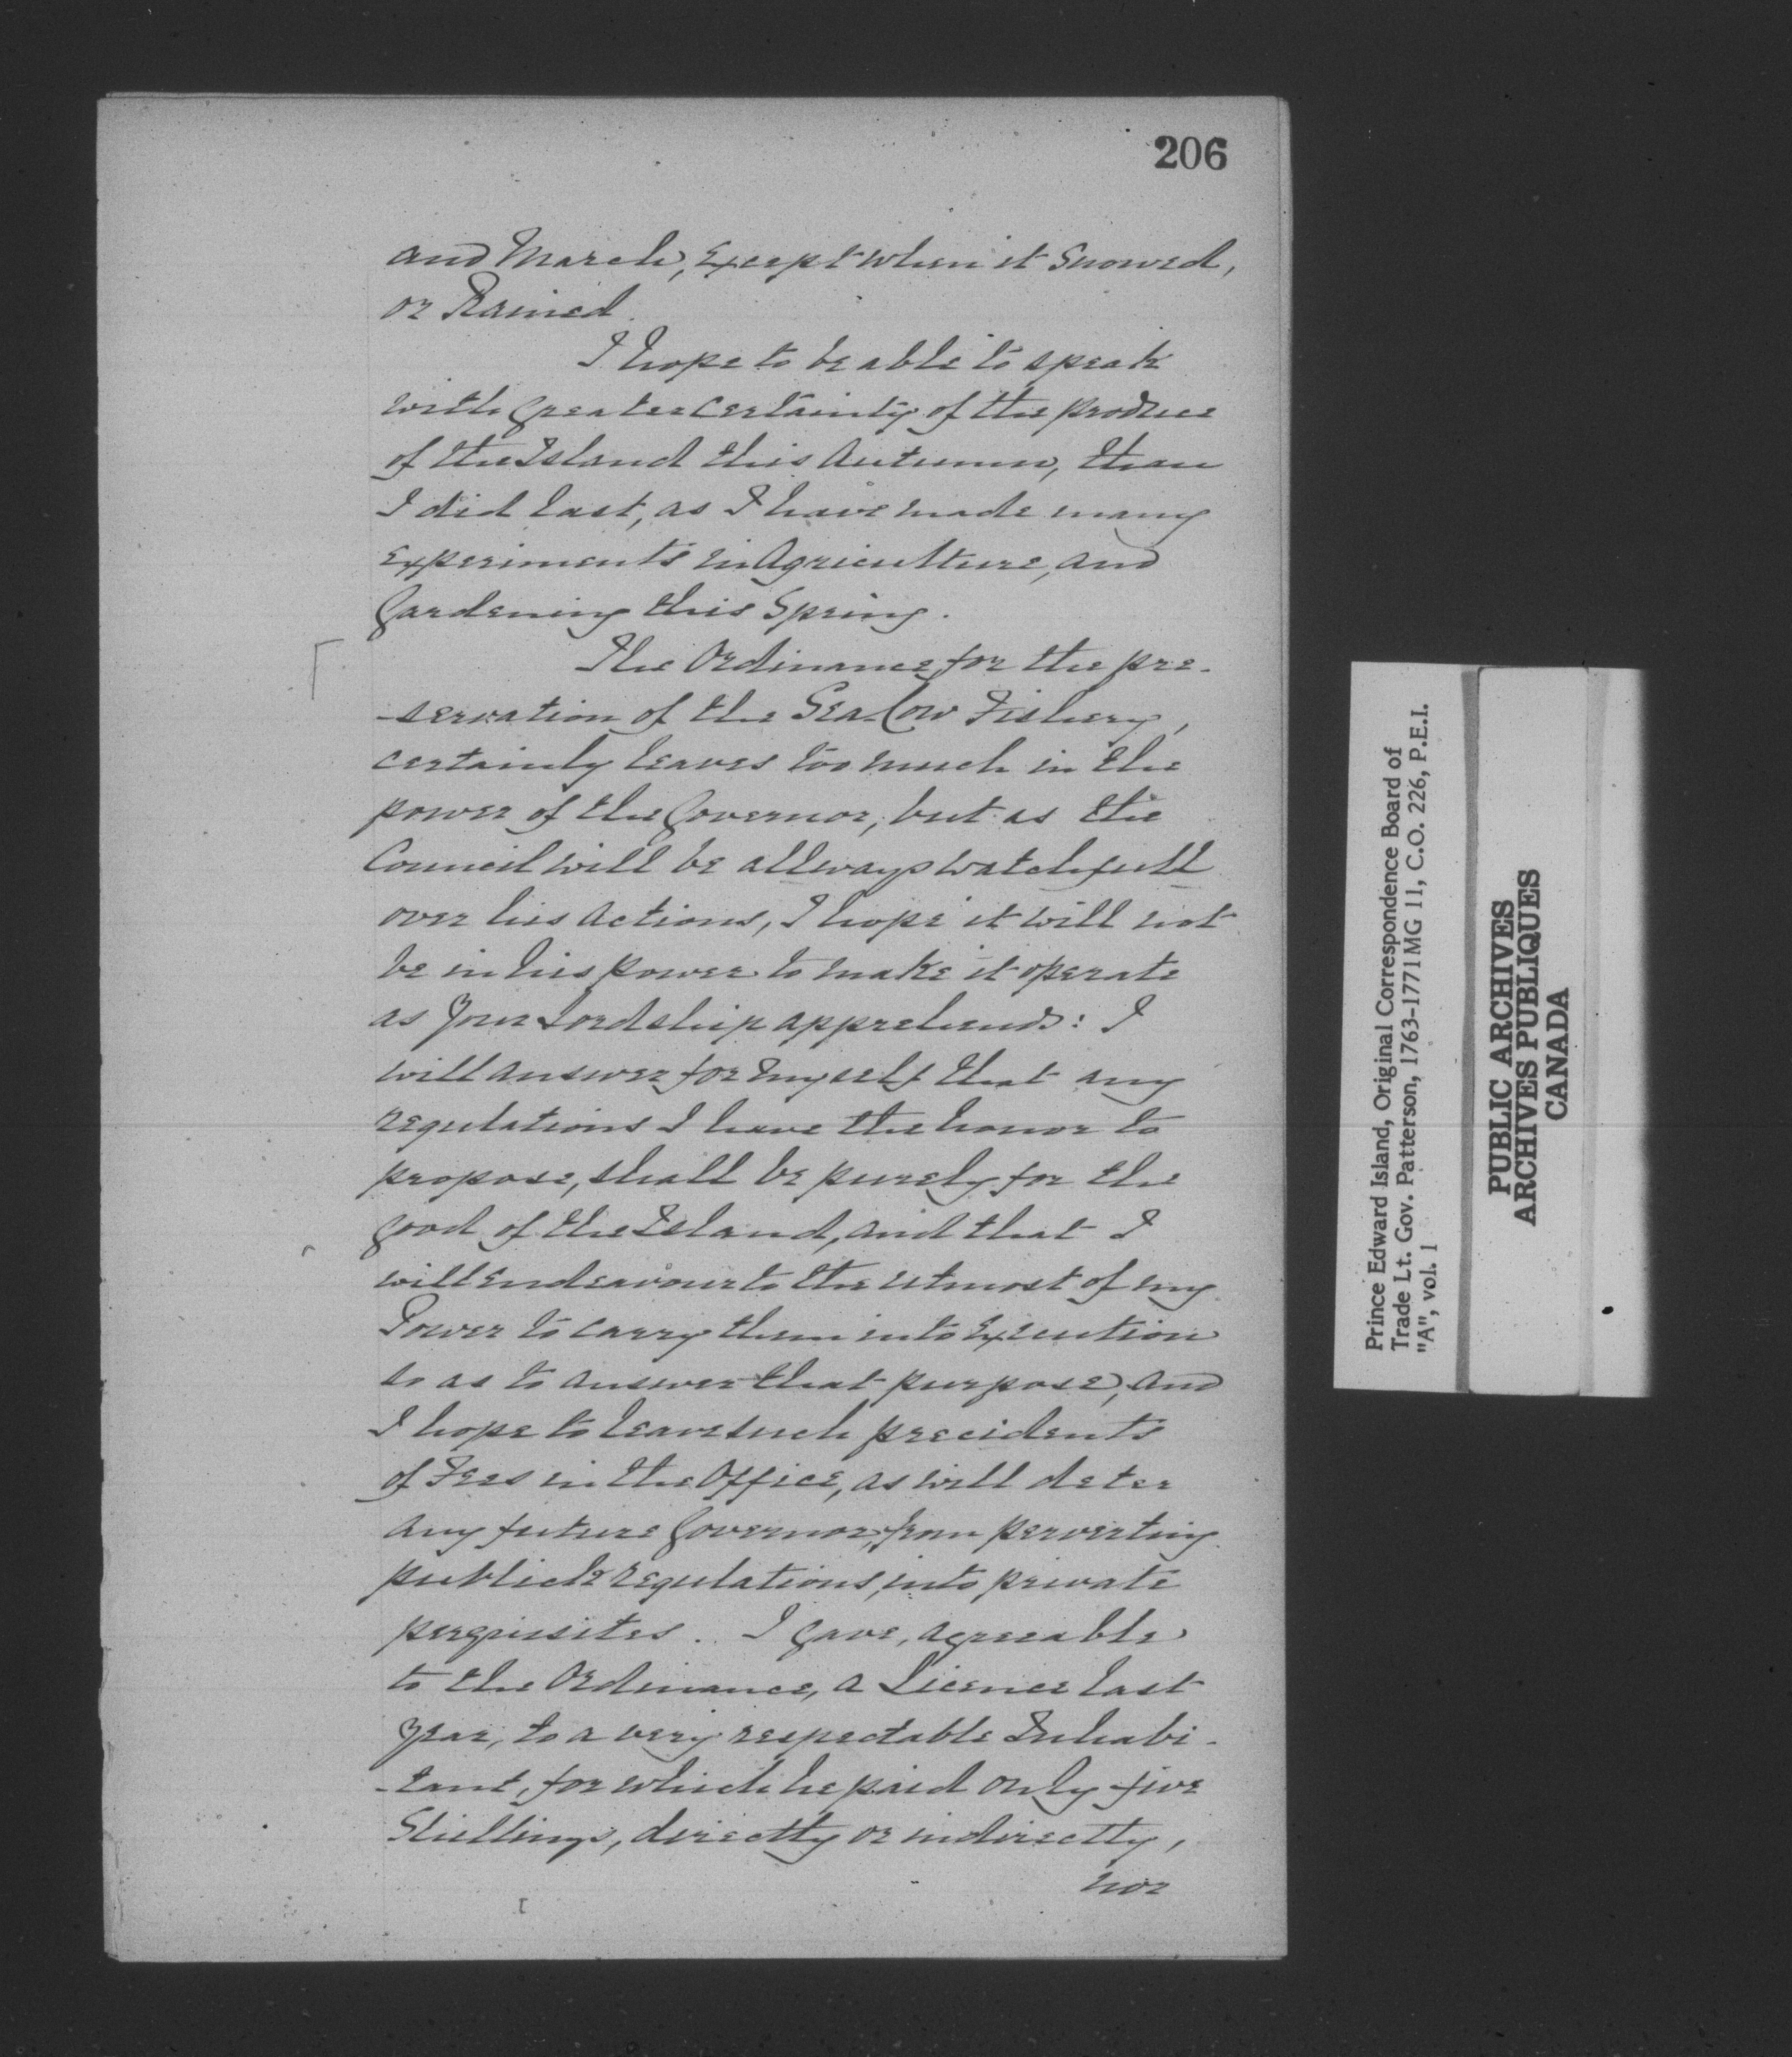 206
and March, Except when it Snowed,
or Rained.
I hope to be able to speak
with greater certainty of the produce
of the Island this Autumn, than
I did last, as I have made many
Experiments in Agriculture, and
Gardening this Spring.
The Ordinance for the pre-
-servation of the Sea Cow Fishery,
certainly leaves too much in the
power of the Governor, but as the
Council will be allways watchfull
over his Actions, I hope it will not
be in his power to make it operate
as Your Lordship apprehends: I
will answer for myself that any
regulations I have the honor to
propose, shall be purely for the
good of the Island, and that I
will Endeavour to the utmost of my
Power to carry them into Execution
so as to answer that purpose, and
I hope to leave such precidents
of Fees in the Office, as will deter
any future Governor, from perverting
publick regulations, into private
perquisites. I gave, agreeable
to the Ordinance, a Licence last
Year, to a very respectable Inhabi-
-tant, for which he paid only five
Shillings, directly or indirectly,
nor
Prince Edward Island, Original Correspondence Board of
Trade Lt. Gov. Patterson, 1763-1771 MG 11, C.O. 226, P.E.I.
"A", vol. 1
PUBLIC ARCHIVES
ARCHIVES PUBLIQUES
CANADA